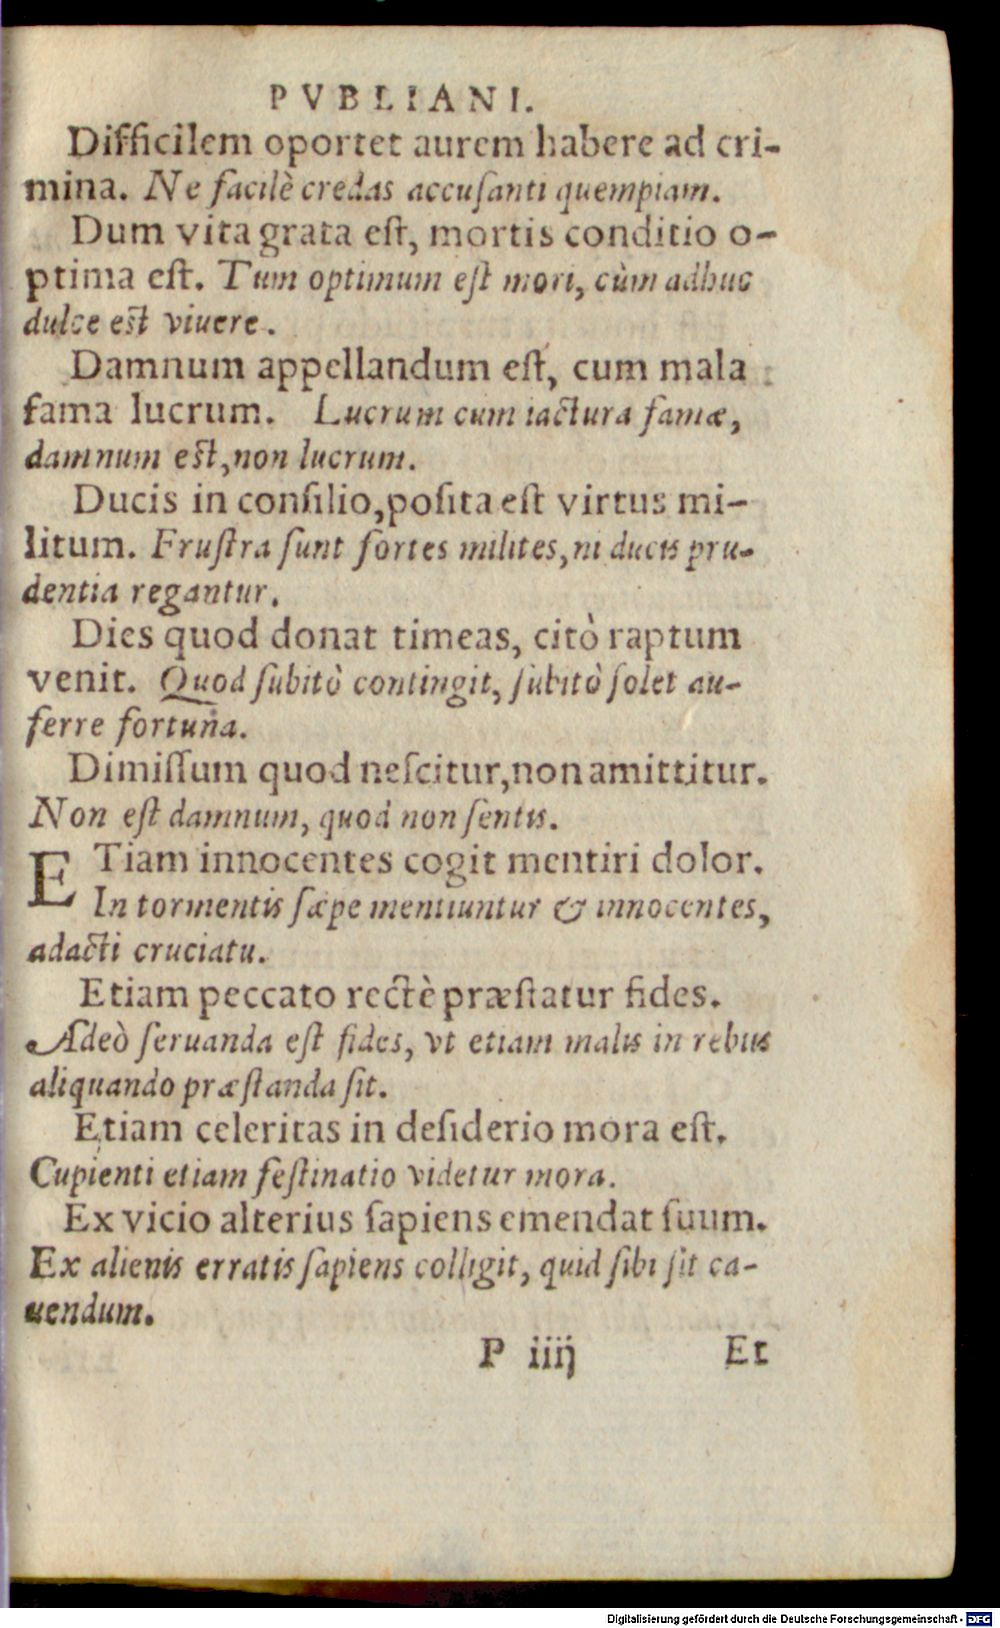 PVBLIANI.
Difficilem oportet aurem habere ad cri-
mina. Ne facilè credas accuſanti quempiam.
Dum vita grata eſt, mortis conditio o-
ptima eſt. Tum optimum eſt mori, cùm adhuc
dulce eſt viuere.
Damnum appellandum eſt, cum mala
fama lucrum. Lucrum cum iactura famæ,
damnum eſt, non lucrum.
Ducis in conſilio, poſita eſt virtus mi-
litum. Fruſtra ſunt fortes milites, ni ducis pru-
dentia regantur.
Dies quod donat timeas, citò raptum
venit. Quod ſubitò contingit, ſubitò ſolet au-
ferre fortuna.
Dimiſſum quod neſcitur, non amittitur.
Non eſt damnum, quod non ſentis.
ETiam innocentes cogit mentiri dolor.
In tormentis ſæpe mentiuntur & innocentes,
adacti cruciatu.
Etiam peccato rectè præſtatur fides.
Adeò ſeruanda eſt fides, vt etiam malis in rebus
aliquando præſtanda ſit.
Etiam celeritas in deſiderio mora eſt.
Cupienti etiam feſtinatio videtur mora.
Ex vicio alterius ſapiens emendat ſuum.
Ex alienis erratis ſapiens colligit, quid ſibi ſit ca-
uendum.
P iiij Et
Digitalisierung gefördert durch die Deutsche Forschungsgemeinschaft - DFG